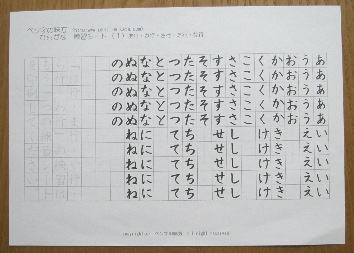 ペン字の味方
ひらがな 練習シート（1）あ行・か行・さ行・た行・な行
あああああいいいいい
うううううえええええ
おおおおお
かかかかかききききき
くくくくくけけけけけ
こここここ
さささささししししし
すすすすすせせせせせ
そそそそそ
たたたたたちちちちち
つつつつつててててて
ととととと
なななななににににに
ぬぬぬぬぬねねねねね
ののののの
copyright(c) ペン字の味方 all right reserved